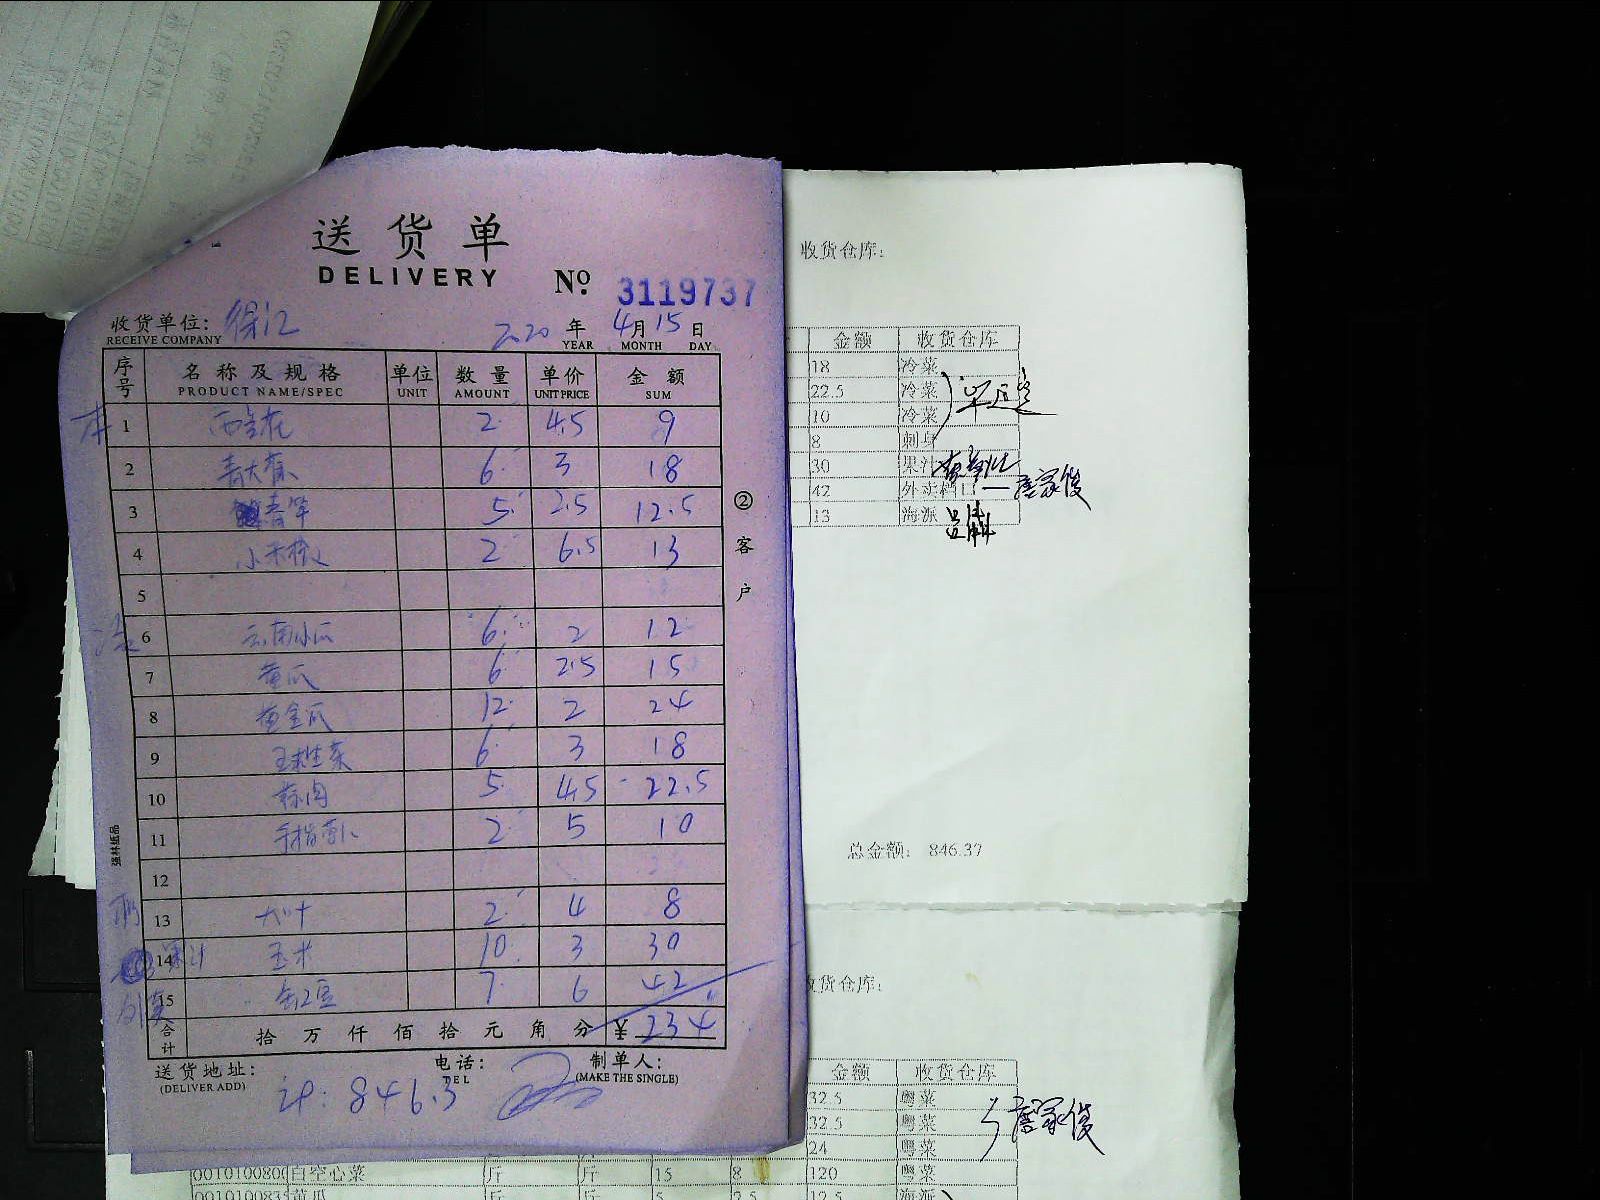 送货单
DELIVERY
No. 3119737
收货单位: 徐汇
RECEIVE COMPANY
2020 年 4月 15 日
YEAR MONTH DAY
序号 名称及规格 单位 数量 单价 金额
PRODUCT NAME/SPEC UNIT AMOUNT UNIT PRICE SUM
1 西兰花 2 4.5 9
2 6 3 18
3 青笋 5 2.5 12.5
4 小米椒 2 6.5 13
5
6 云南小瓜 6 2 12
7 黄瓜 6 2.5 15
8 黄金瓜 12 2 24
9 球生菜 6 3 18
10 蒜肉 5 4.5 22.5
11 手指萝卜 2 5 10
12
13 大叶 2 4 8
14 果汁 玉米 10 3 30
15 外卖 豇豆 7 6 42
合计 拾 万 仟 佰 拾 元 角 分 ¥ 234
送货地址: 电话: 制单人:
(DELIVER ADD) TEL (MAKE THE SINGLE)
计: 846.3
②客户
强林纸品
收货仓库:
金额 收货仓库
18 冷菜
22.5 冷菜
10 冷菜
8 刺身
30 果汁
42 外卖档口 唐家俊
13 海派
总金额: 846.37
收货仓库:
金额 收货仓库
32.5 粤菜
32.5 粤菜 唐家俊
24 粤菜
0010100800 白空心菜 斤 斤 15 8 120 粤菜
001010083 黄瓜 斤 斤 5 2.5 12.5 海派